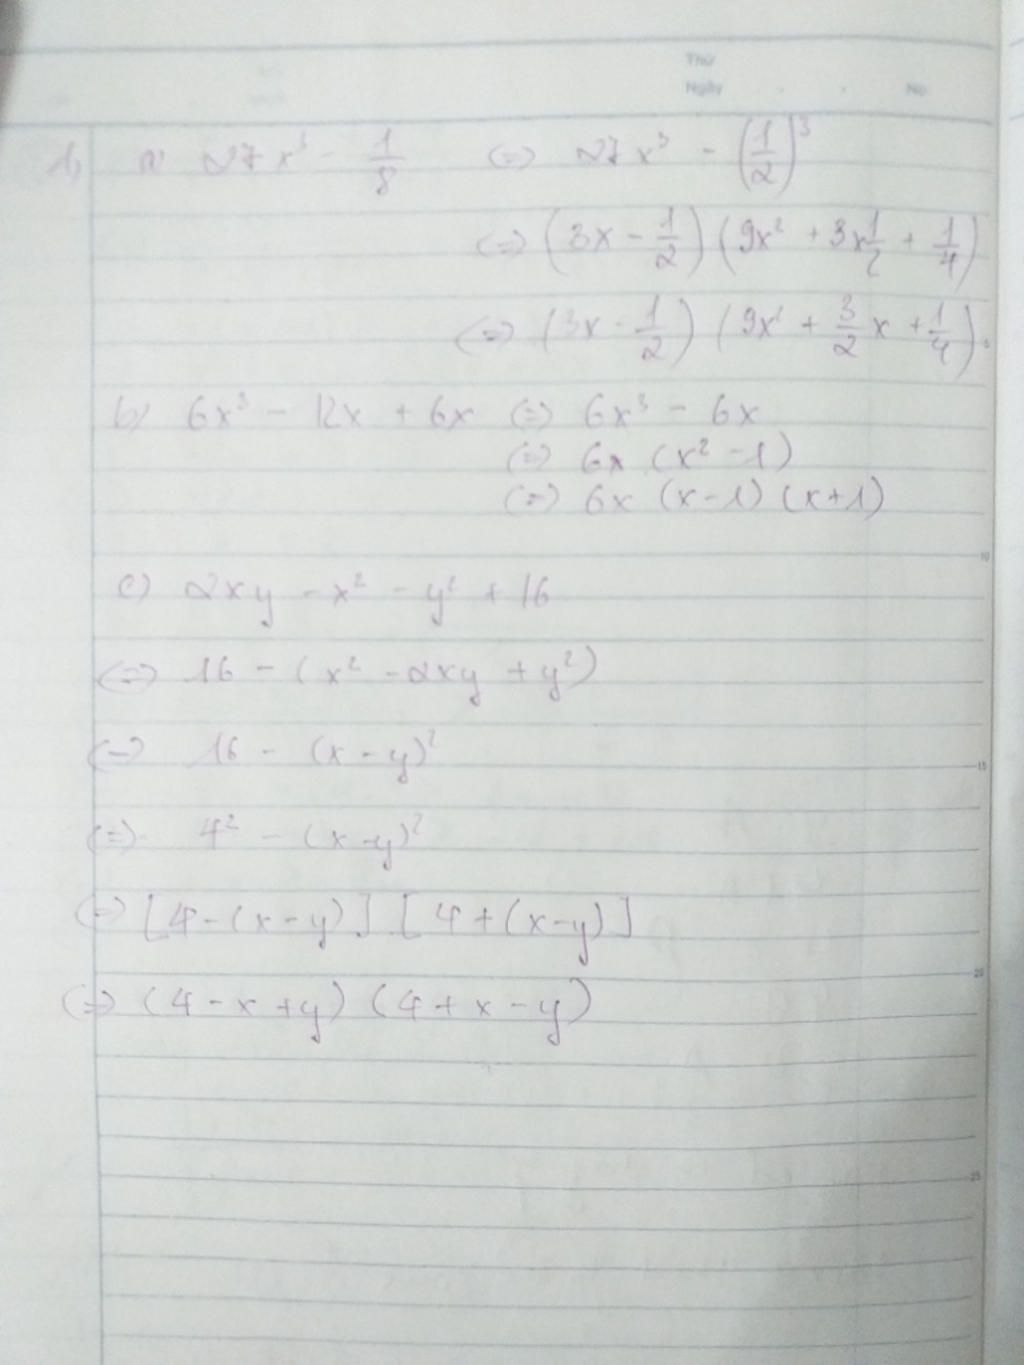 Thứ
Ngày . . No
1) a) 27x³ - 1/8 (=) 27x³ - (1/2)³
(=) (3x - 1/2) (9x² + 3x 1/2 + 1/4)
(=) (3x - 1/2) (9x² + 3/2 x + 1/4).
b) 6x³ - 12x + 6x (=) 6x³ - 6x
(=) 6x (x² - 1)
(=) 6x (x-1) (x+1)
10
c) 2xy - x² - y² + 16
(=) 16 - (x² - 2xy + y²)
(=) 16 - (x - y)²
15
(=) 4² - (x - y)²
(=) [4 - (x - y)] [4 + (x - y)]
20
(=) (4 - x + y) (4 + x - y)
25